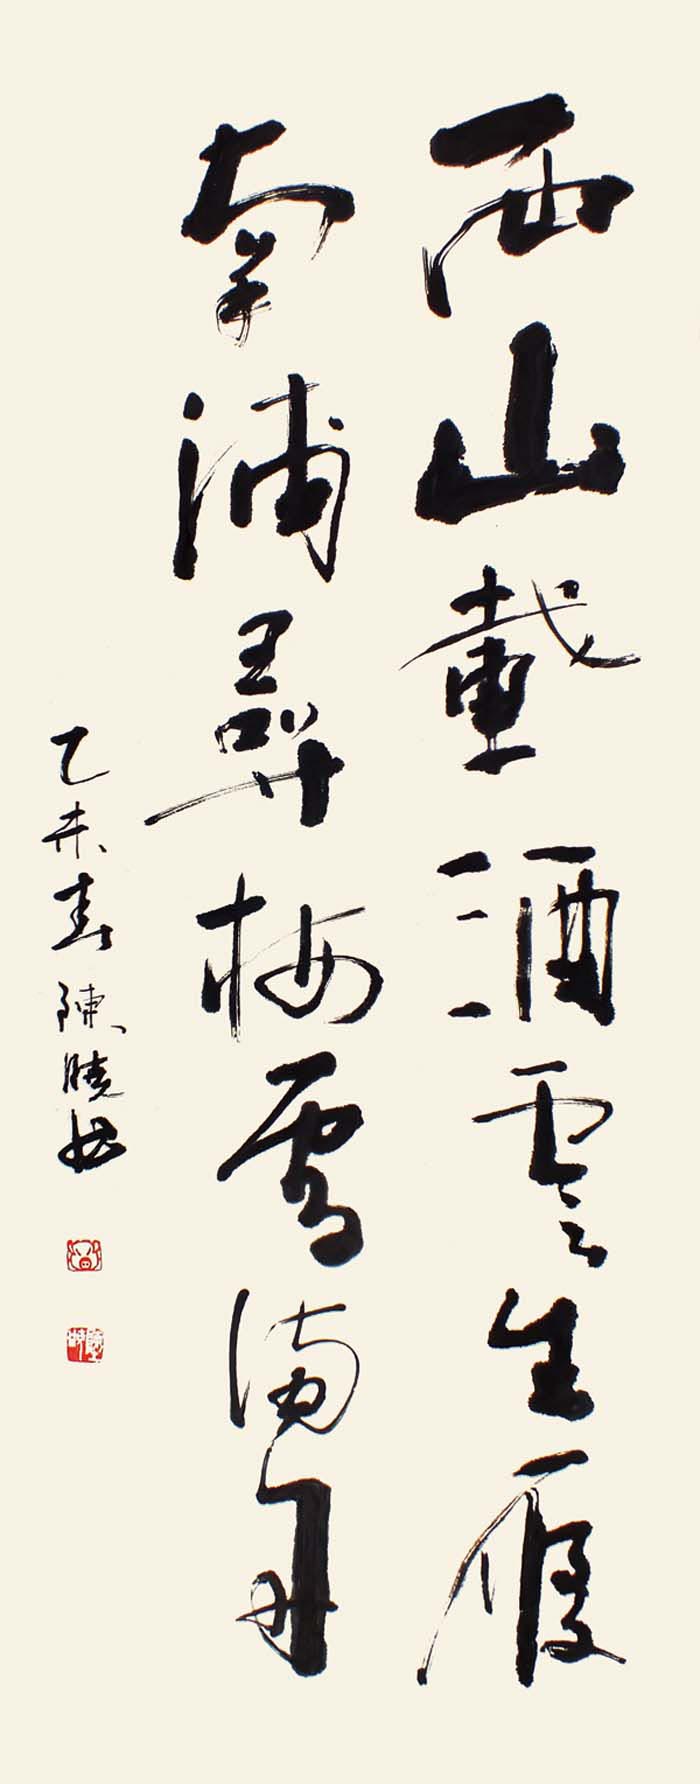 西山載酒雲生履
南浦尋梅雪滿舟
乙未春陳曉